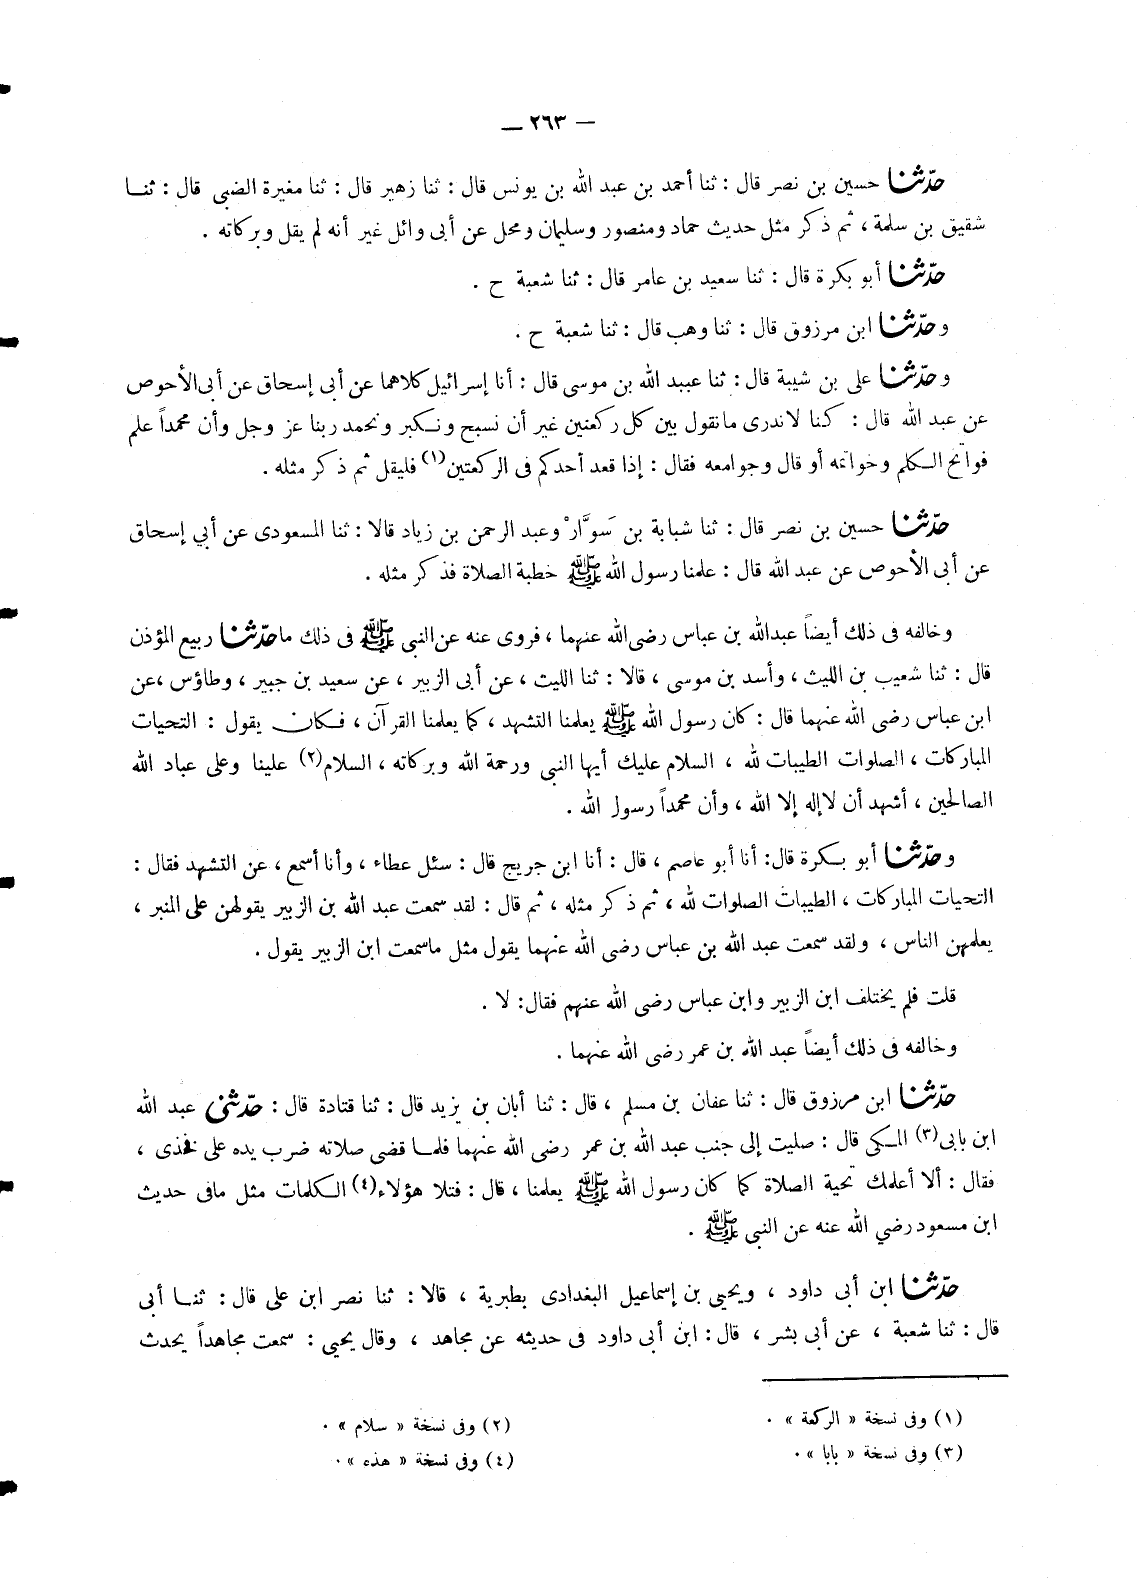 — ٢٦٣ —
حدّثنا حسين بن نصر قال : ثنا أحمد بن عبد الله بن يونس قال : ثنا زهير قال : ثنا مغيرة الضبى قال : ثنـا
شقيق بن سلمة ، ثم ذكر مثل حديث حماد ومنصور وسليمان ومحل عن أبى وائل غير أنه لم يقل وبركاته .
حدّثنا أبو بكرة قال : ثنا سعيد بن عامر قال : ثنا شعبة ح .
وحدّثنا ابن مرزوق قال : ثنا وهب قال : ثنا شعبة ح .
وحدّثنا على بن شيبة قال : ثنا عبيد الله بن موسى قال : أنا إسرائيل كلاهما عن أبى إسحاق عن أبى الأحوص
عن عبد الله قال : كنا لا ندرى ما نقول بين كل ركعتين غير أن نسبح ونكبر ونحمد ربنا عز وجل وأن محمداً علم
فواتح الكلم وخواتمه أو قال وجوامعه فقال : إذا قعد أحدكم فى الركعتين(١) فليقل ثم ذكر مثله .
حدّثنا حسين بن نصر قال : ثنا شبابة بن سَوَّارْ وعبد الرحمن بن زياد قالا : ثنا المسعودى عن أبي إسحاق
عن أبى الأحوص عن عبد الله قال : علمنا رسول الله ﷺ خطبة الصلاة فذكر مثله .
وخالفه فى ذلك أيضاً عبدالله بن عباس رضى الله عنهما ، فروى عنه عن النبى ﷺ فى ذلك ما حدّثنا ربيع المؤذن
قال : ثنا شعيب بن الليث ، وأسد بن موسى ، قالا : ثنا الليث ، عن أبى الزبير ، عن سعيد بن جبير ، وطاؤس ،عن
ابن عباس رضى الله عنهما قال : كان رسول الله ﷺ يعلمنا التشهد ، كما يعلمنا القرآن ، فكان يقول : التحيات
المباركات ، الصلوات الطيبات لله ، السلام عليك أيها النبى ورحمة الله وبركاته ، السلام(٢) علينا وعلى عباد الله
الصالحين ، أشهد أن لا إله إلا الله ، وأن محمداً رسول الله .
وحدّثنا أبو بكرة قال: أنا أبو عاصم ، قال : أنا ابن جريج قال : سئل عطاء ، وأنا أسمع ، عن التشهد فقال :
التحيات المباركات ، الطيبات الصلوات لله ، ثم ذكر مثله ، ثم قال : لقد سمعت عبد الله بن الزبير يقولهن على المنبر ،
يعلمهن الناس ، ولقد سمعت عبد الله بن عباس رضى الله عنهما يقول مثل ما سمعت ابن الزبير يقول .
قلت فلم يختلف ابن الزبير وابن عباس رضى الله عنهم فقال: لا .
وخالفه فى ذلك أيضاً عبد الله بن عمر رضى الله عنهما .
حدّثنا ابن مرزوق قال : ثنا عفان بن مسلم ، قال : ثنا أبان بن يزيد قال : ثنا قتادة قال : حدّثنى عبد الله
ابن بابى(٣) المكى قال : صليت إلى جنب عبد الله بن عمر رضى الله عنهما فلمـا قضى صلاته ضرب يده على فخذى ،
فقال : ألا أعلمك تحية الصلاة كما كان رسول الله ﷺ يعلمنا ، قال : فتلا هؤلاء(٤) الكلمات مثل ما فى حديث
ابن مسعود رضي الله عنه عن النبى ﷺ .
حدّثنا ابن أبى داود ، ويحيى بن إسماعيل البغدادى بطبرية ، قالا : ثنا نصر ابن على قال : ثنـا أبى
قال : ثنا شعبة ، عن أبى بشر ، قال : ابن أبى داود فى حديثه عن مجاهد ، وقال يحيى : سمعت مجاهداً يحدث
(١) وفى نسخة « الركعة » .
(٢) وفى نسخة « سلام » .
(٣) وفى نسخة « بابا » .
(٤) وفى نسخة « هذه » .